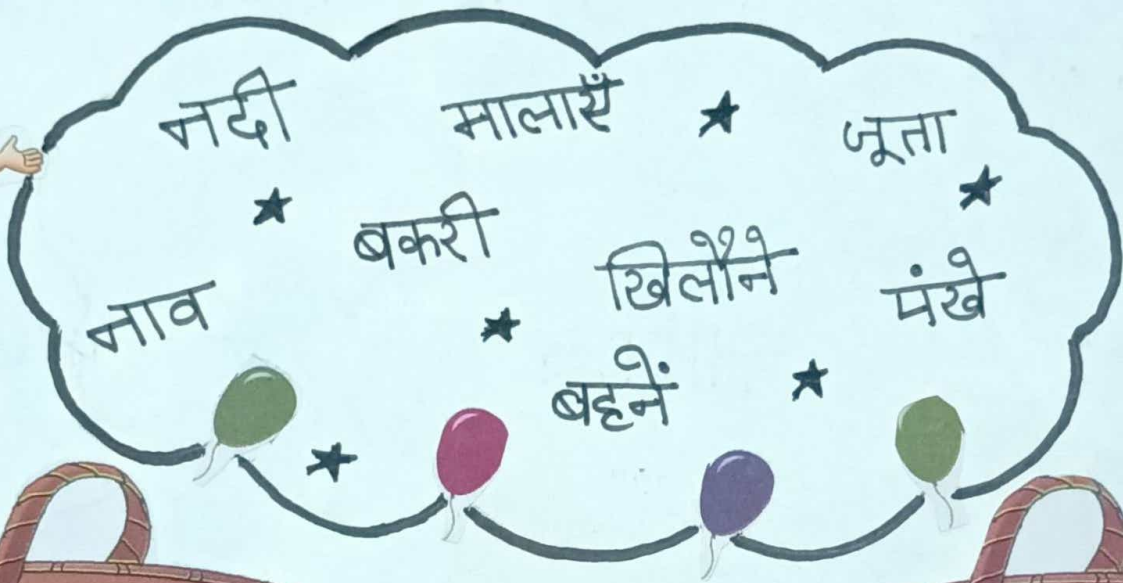 नदी मालाएँ जूता
बकरी
खिलौने पंखे
नाव
बहनें